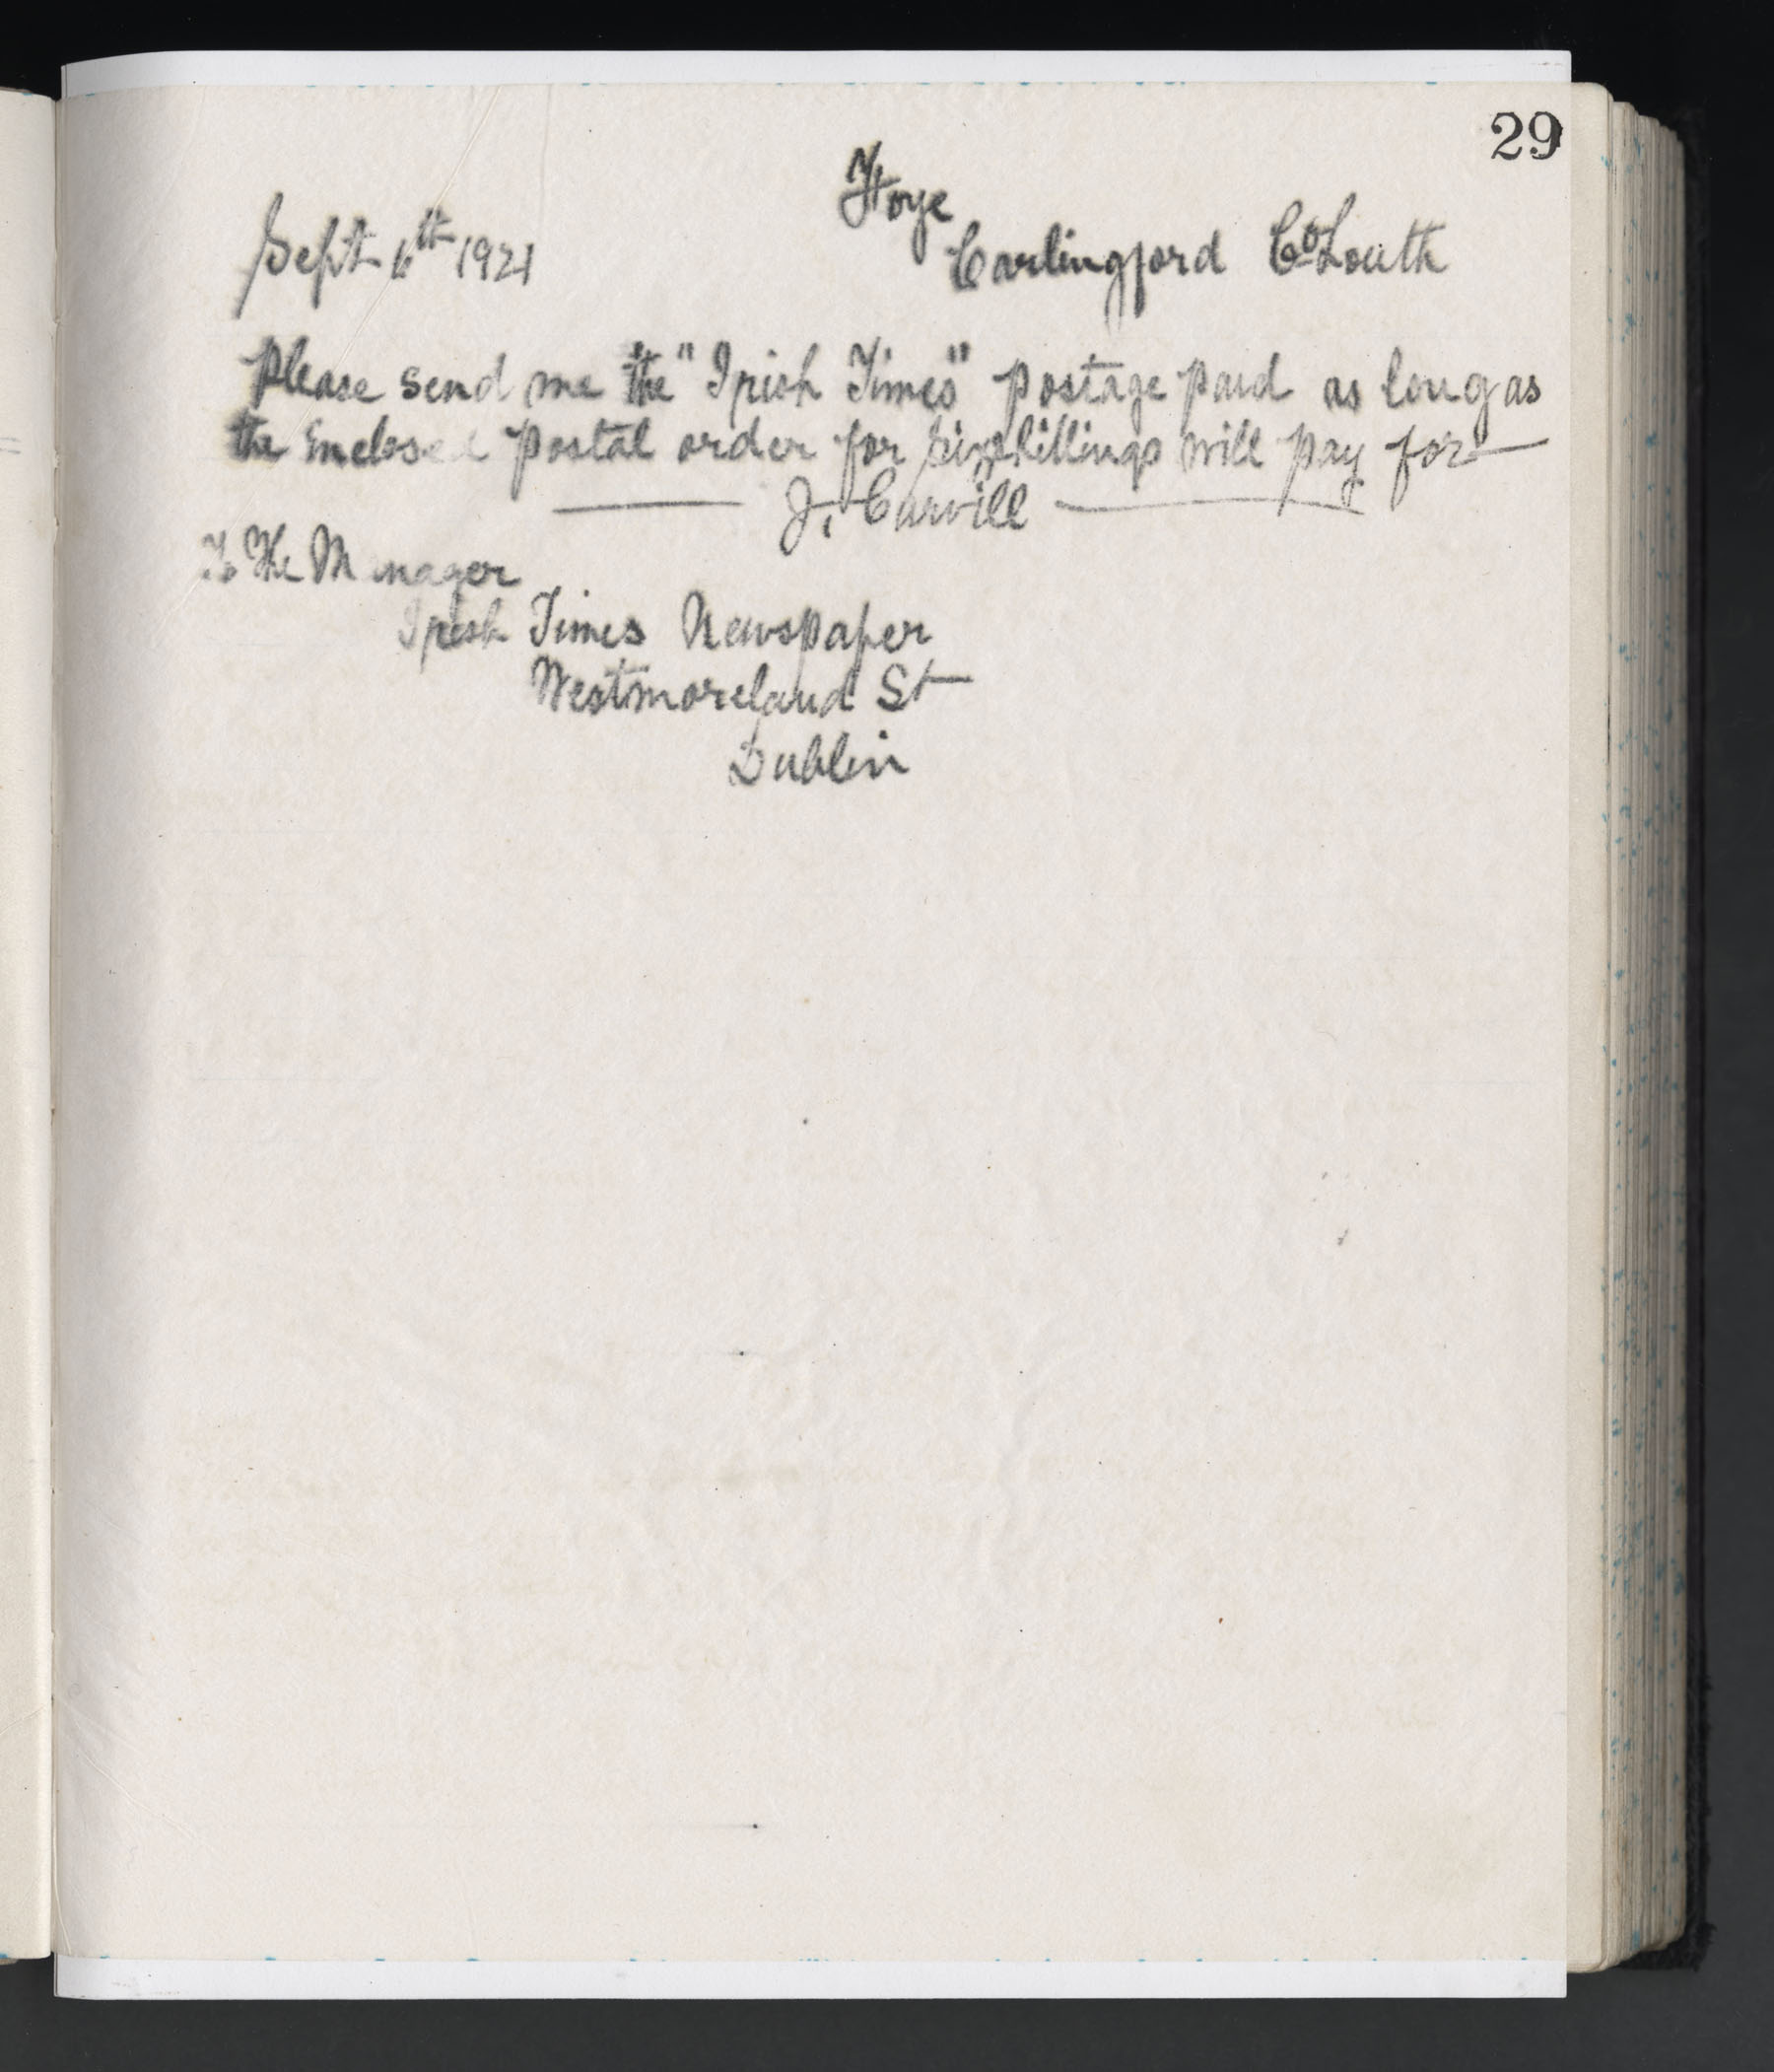 29
Foye
Sept 6th 1921
Carlingford Co Louth
Please send me the "Irish Times" postage paid as long as
the Enclosed postal order for six shillings will pay for—
— J. Carvill —
To The Manager
Irish Times Newspaper
Westmoreland St
Dublin